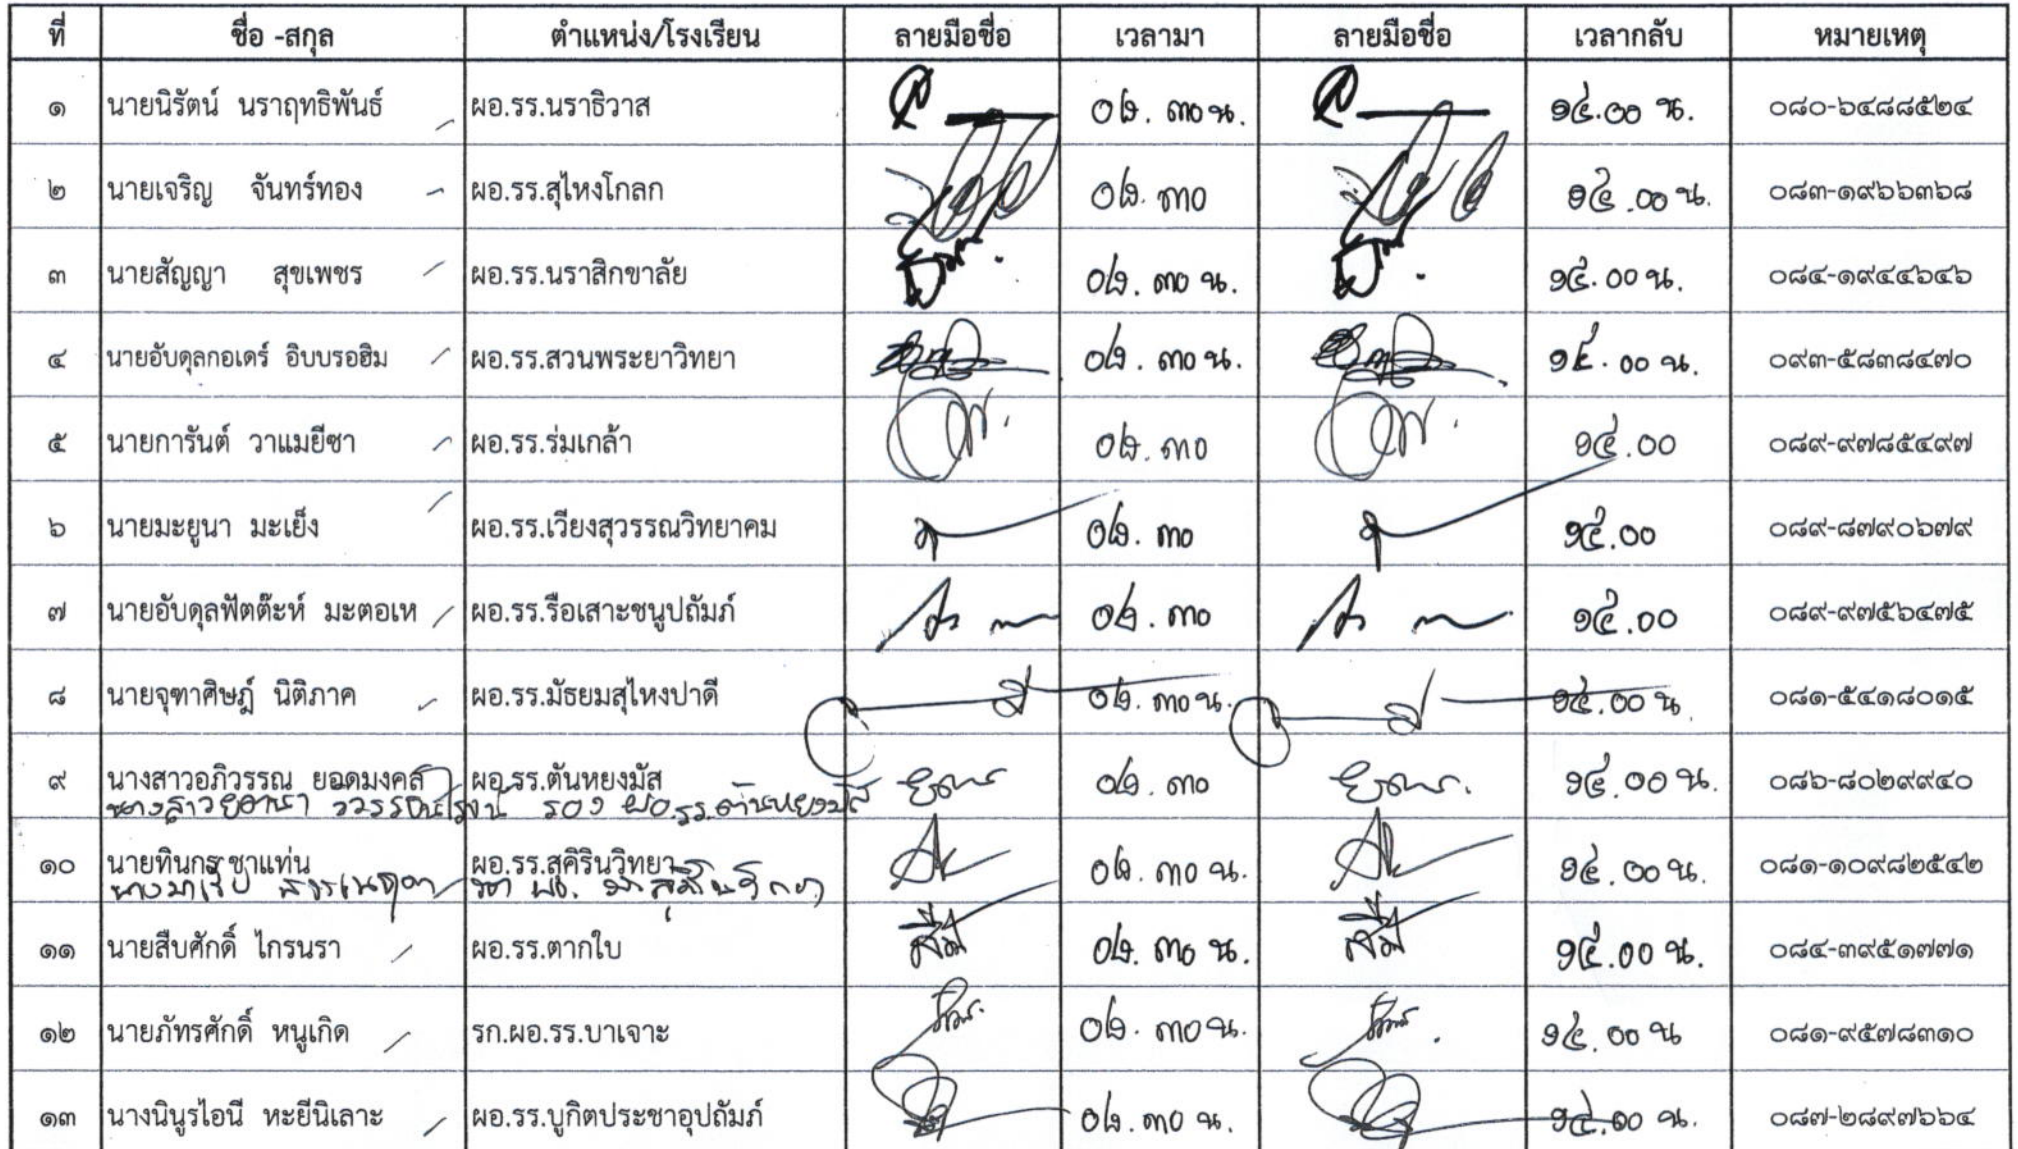 ที่ ชื่อ -สกุล ตำแหน่ง/โรงเรียน ลายมือชื่อ เวลามา ลายมือชื่อ เวลากลับ หมายเหตุ
๑ นายนิรัตน์ นราฤทธิพันธ์ ผอ.รร.นราธิวาส ๓๐ น. ๑๕.๐๐ น. ๐๘๐-๖๔๘๘๕๒๔
๒ นายเจริญ จันทร์ทอง ผอ.รร.สุไหงโกลก ๓๐ ๑๕.๐๐ น. ๐๘๓-๑๙๖๖๓๖๘
๓ นายสัญญา สุขเพชร ผอ.รร.นราสิกขาลัย ๓๐ น. ๑๕.๐๐ น. ๐๘๔-๑๙๔๔๖๔๖
๔ นายอับดุลกอเดร์ อิบบรอฮิม ผอ.รร.สวนพระยาวิทยา ๓๐ น. ๑๕.๐๐ น. ๐๙๓-๕๘๓๘๔๗๐
๕ นายการันต์ วาแมยีซา ผอ.รร.ร่มเกล้า ๓๐ ๑๕.๐๐ ๐๘๙-๙๗๘๕๔๙๗
๖ นายมะยูนา มะเย็ง ผอ.รร.เวียงสุวรรณวิทยาคม ๓๐ ๑๕.๐๐ ๐๘๙-๘๗๙๐๖๗๙
๗ นายอับดุลฟัตต๊ะห์ มะตอเห ผอ.รร.รือเสาะชนูปถัมภ์ ๓๐ ๑๕.๐๐ ๐๘๙-๙๗๕๖๔๗๕
๘ นายจุฑาศิษฎ์ นิติภาค ผอ.รร.มัธยมสุไหงปาดี ๓๐ น. ๑๕.๐๐ น. ๐๘๑-๕๔๑๘๐๑๕
๙ นางสาวอภิวรรณ ยอดมงคล ผอ.รร.ตันหยงมัส ๓๐ ๑๕.๐๐ น. ๐๘๖-๘๐๒๙๙๔๐
นางสาว รอง ผอ.รร.ตันหยงมัส
๑๐ นายทินกร ชาแท่น ผอ.รร.สุคิรินวิทยา ๓๐ น. ๑๕.๐๐ น. ๐๘๑-๑๐๙๘๒๕๔๒
๑๑ นายสืบศักดิ์ ไกรนรา ผอ.รร.ตากใบ ๓๐ น. ๑๕.๐๐ น. ๐๘๔-๓๙๕๑๗๗๑
๑๒ นายภัทรศักดิ์ หนูเกิด รก.ผอ.รร.บาเจาะ ๓๐ น. ๑๕.๐๐ น ๐๘๑-๙๕๗๘๓๑๐
๑๓ นางนินูรไอนี หะยีนิเลาะ ผอ.รร.บูกิตประชาอุปถัมภ์ ๓๐ น. ๑๕.๐๐ น. ๐๘๗-๒๘๙๗๖๖๔